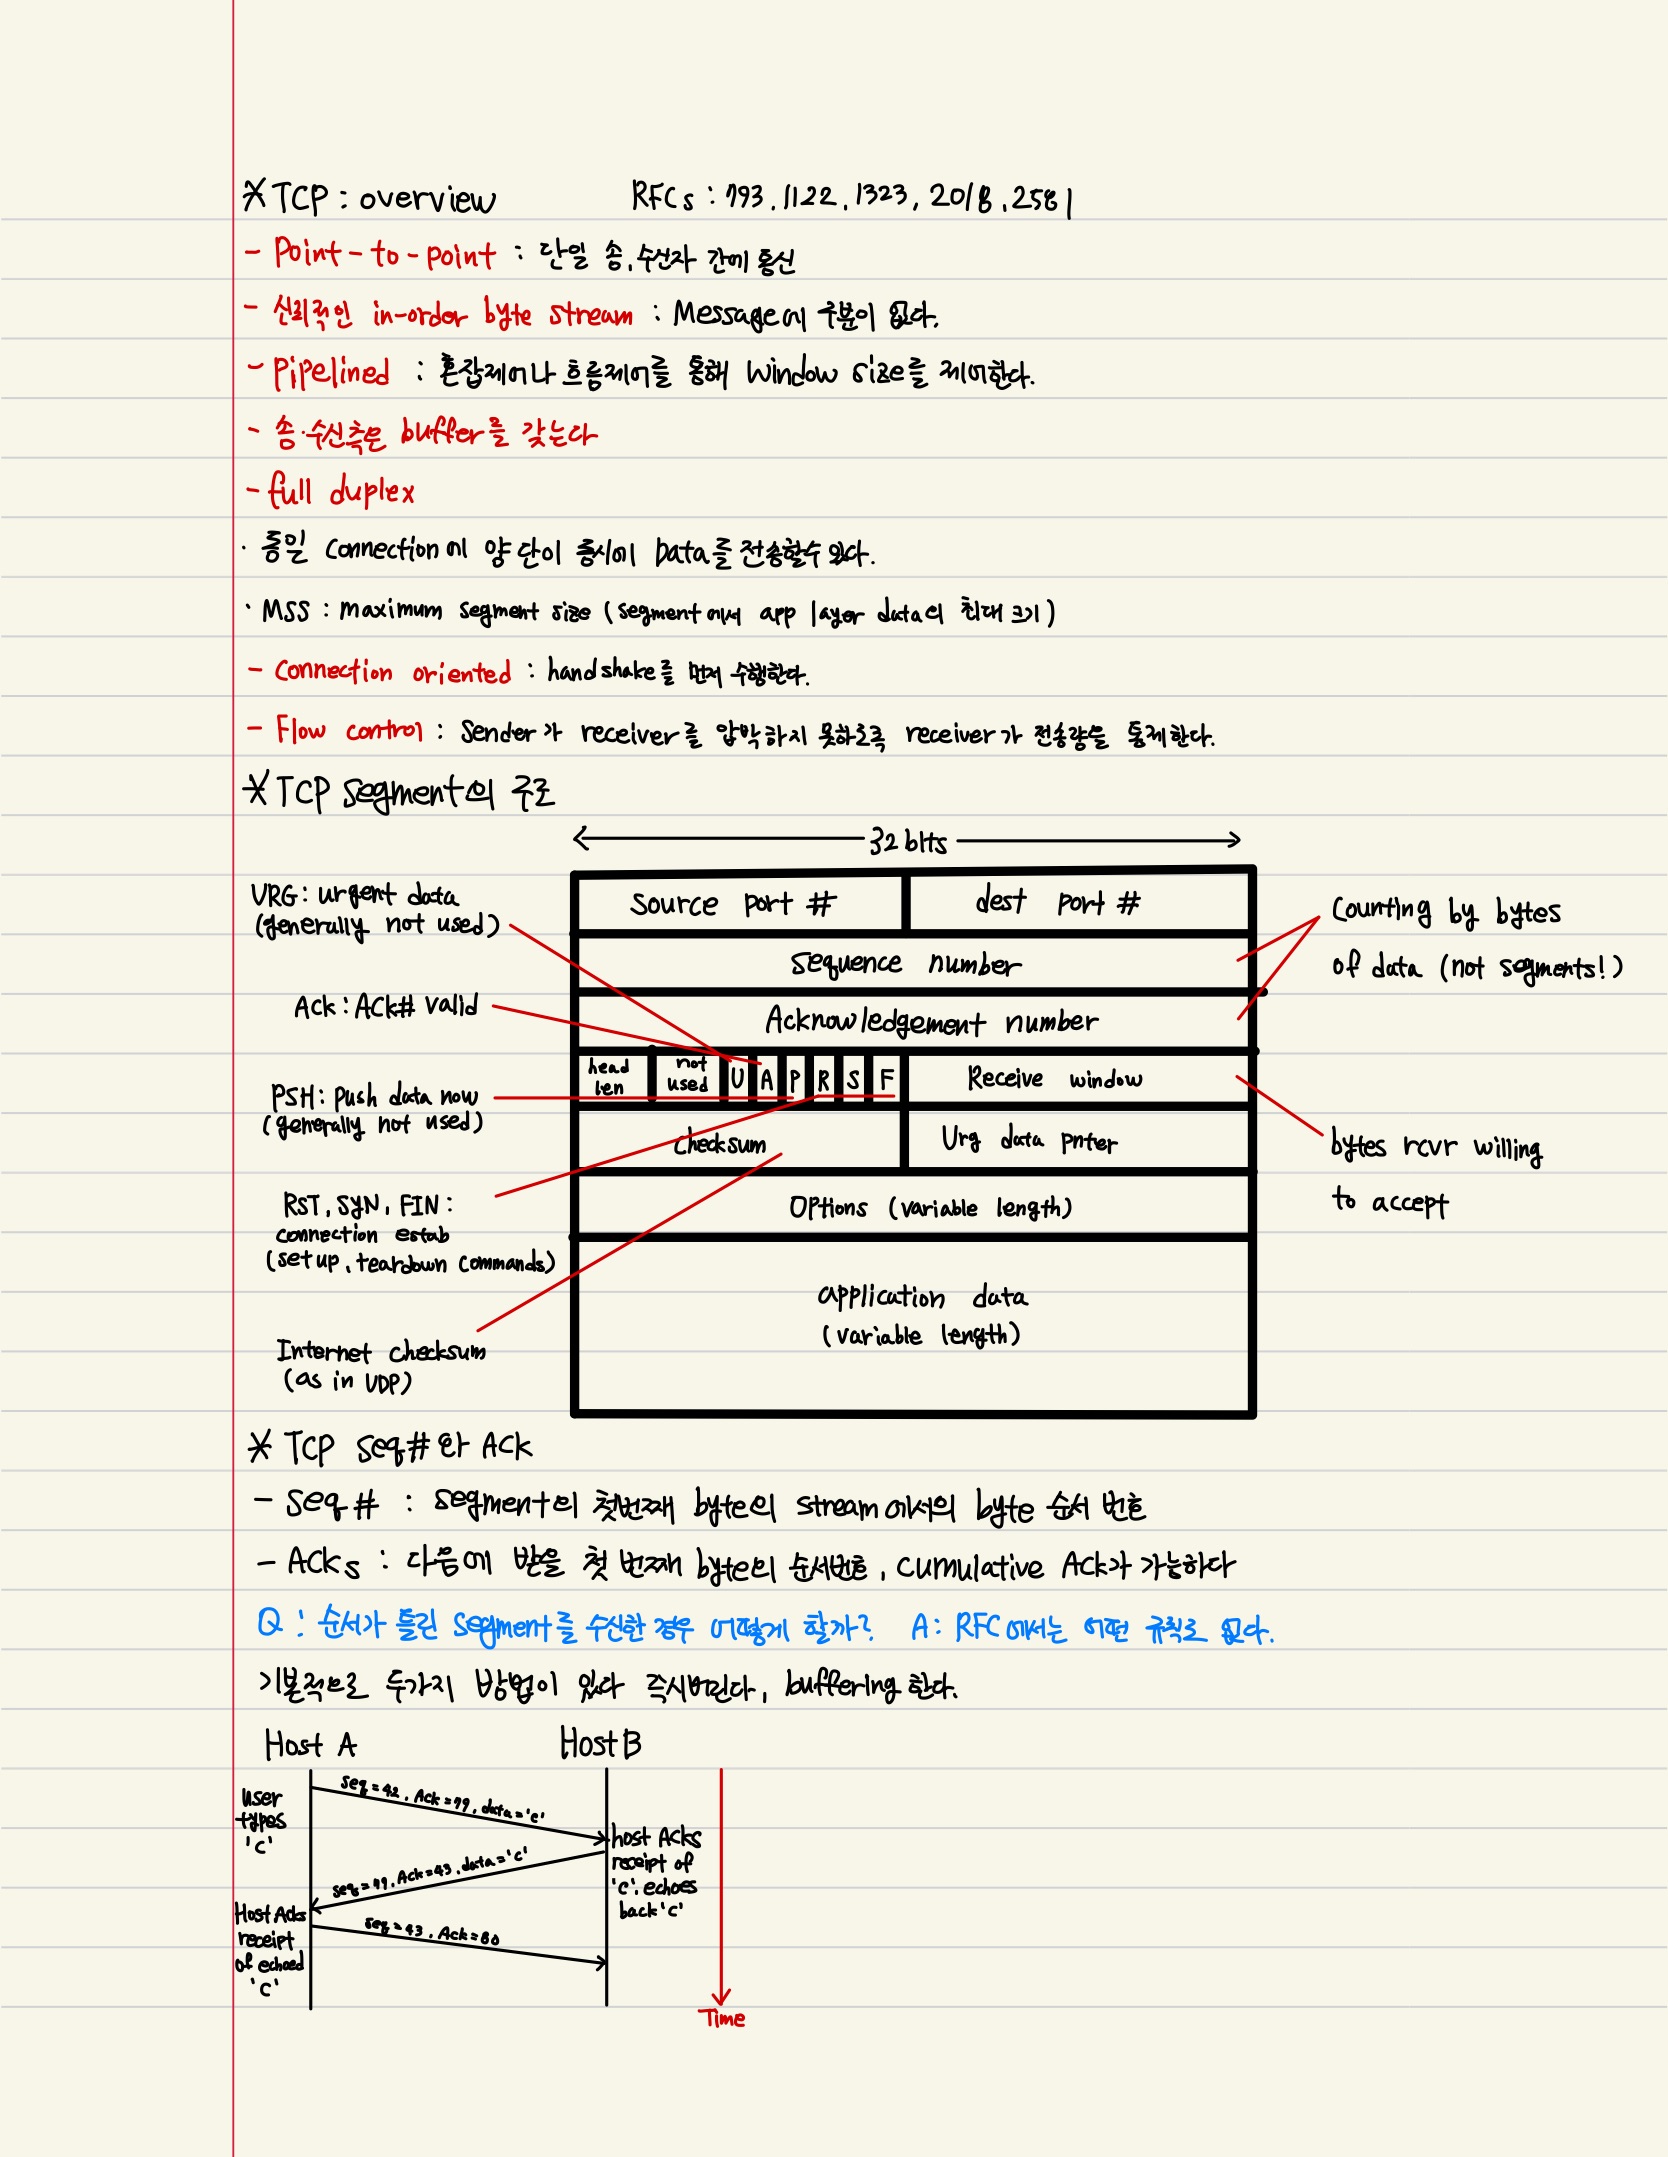 * TCP : overview RFCs : 793, 1122, 1323, 2018, 2581
- Point-to-point : 단일 송,수신자 간에 통신
- 신뢰적인 in-order byte stream : Message에 구분이 없다.
- Pipelined : 혼잡제어나 흐름제어를 통해 window size를 제어한다.
- 송·수신측은 buffer를 갖는다
- full duplex
· 동일 connection에 양 단이 동시에 Data를 전송할수 있다.
· MSS : maximum segment size (segment에서 app layer data의 최대 크기)
- Connection oriented : handshake를 먼저 수행한다.
- Flow control : Sender가 receiver를 압박하지 못하도록 receiver가 전송량을 통제한다.
* TCP segment의 구조
32 bits
URG : urgent data
(generally not used)
Source port # dest port #
Counting by bytes
of data (not segments!)
Sequence number
Ack : ACK# valid
Acknowledgement number
head
len
not
used
U A P R S F Receive window
PSH : push data now
(generally not used)
checksum Urg data pnter
bytes rcvr willing
to accept
RST, SYN, FIN :
connection estab
(setup, teardown commands)
Options (variable length)
application data
(variable length)
Internet checksum
(as in UDP)
* TCP seq#와 ACK
- Seq# : segment의 첫번째 byte의 stream에서의 byte 순서 번호
- ACKs : 다음에 받을 첫 번째 byte의 순서번호, cumulative Ack가 가능하다
Q : 순서가 틀린 segment를 수신한 경우 어떻게 할까? A : RFC에서는 어떤 규칙도 없다.
기본적으로 두가지 방법이 있다 즉시버린다, buffering 한다.
Host A Host B
user
types
'C'
Seq=42, Ack=79, data='c'
host ACKs
receipt of
'C', echoes
back 'C'
seq=79, Ack=43, data='c'
Host Acks
receipt
of echoed
'C'
seq=43, Ack=80
Time